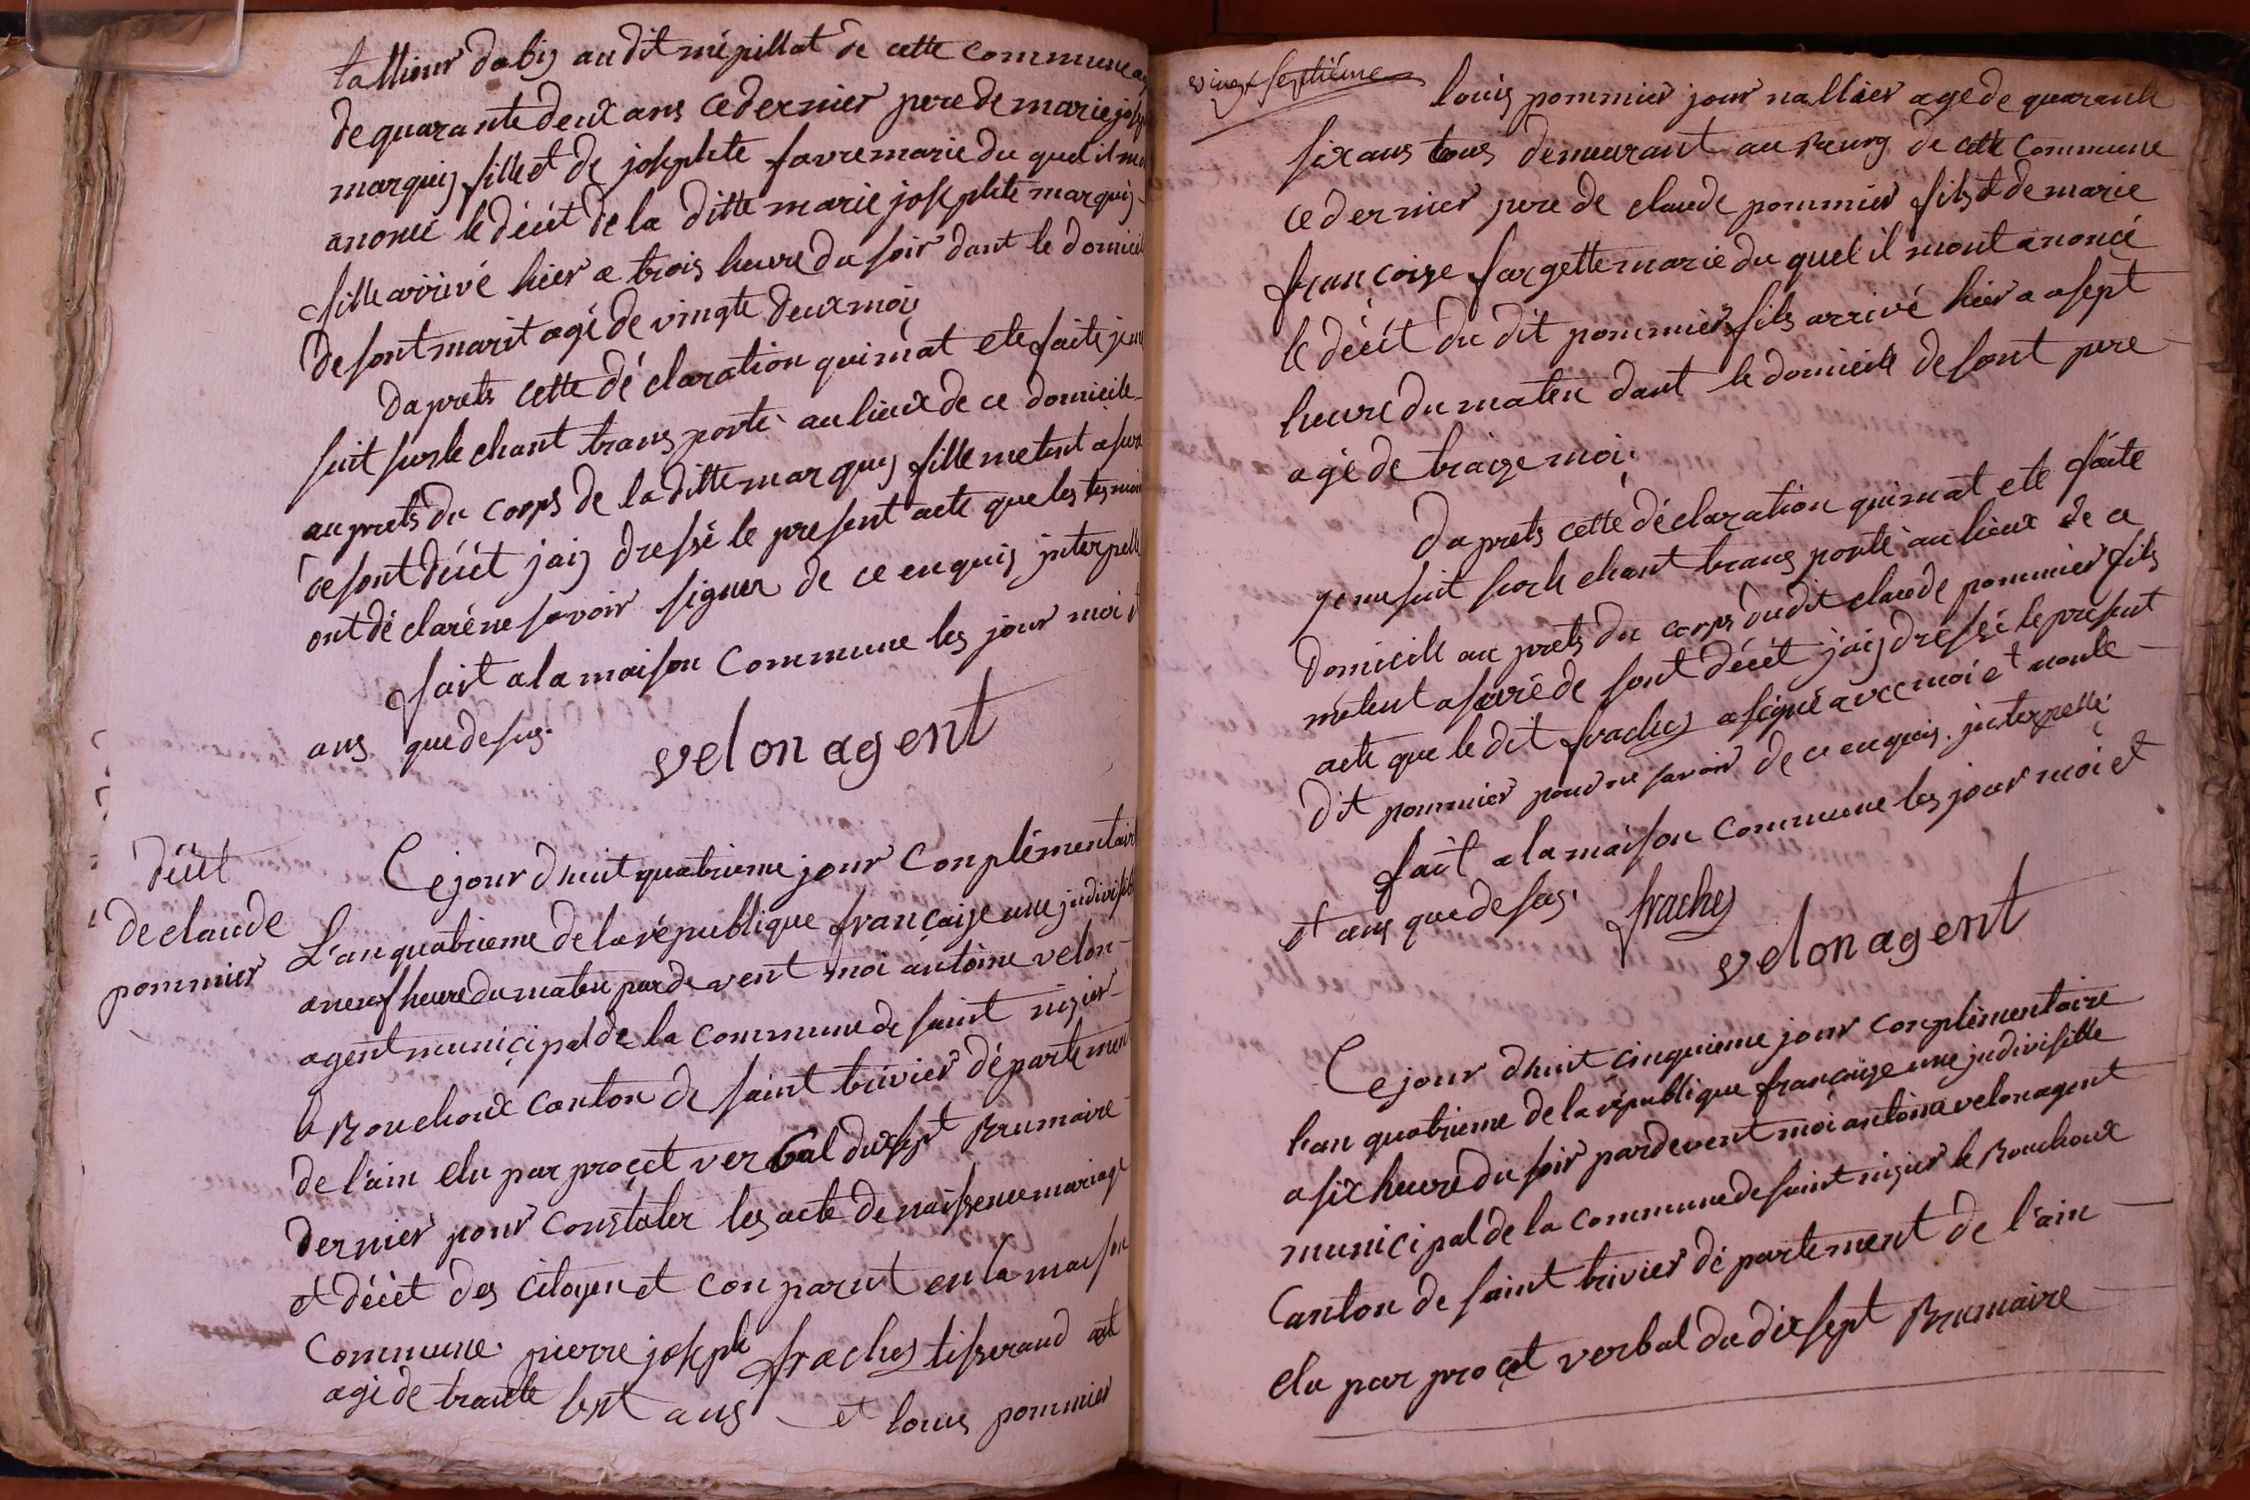 tallieur dabij au dit mépillat de cette commune
de quarante deux ans ce dernier pere de marie
marquis fille et de josephte favre marie du quel il
anoncé le décét de la ditte marie josephte marquis
fille arrivé hier a trois heure du soir dant le domicil
de sont marit agé de vingte deux moi
daprets cette déclaration qui mat ete faite je
suit surle chant trans porté au lieux de ce domicile
au prets du corps de la ditte marquis fille metent
de sont décét jaij dressé le present acte que les
ont déclaré ne savoir signer de ce enquis interpellé
fait a la maison commune les jour moi
ans que desus.
velon agent
décét
de claude
pommier
Ce jour dhuit quatrieme jour conplémentair
L'an quatrieme de la république françaize une indivisibl
a neuf heure du maten parde vent moi antoine velon
agent municipal de la commune de saint nizier
le Bouchoux canton de saint trivier départemen
de l'ain elu par procet verbal dixsept Brumaire
dernier pour constater les acte de naissence mariage
et décét des citoyen et conparut en la maison
commune pierre joseph fraches tisserand
agé de trante sept ans et louis pommier
vingt septiéme
louis pommier jour nallier agé de quarante
six ans tous demeurant au Bourg de cette commune
ce dernier pere de claude pommier fils et de marie
francoize fargette marie du quel il mont anoncé
le décét du dit pommier fils arrivé hier a sept
heure du maten dant le domicile de sont pere
agé de traize moi
daprets cette déclaration qui mat ete faite
je me suit surle chant trans porté au lieux de ce
domicile au prets du corps du dit claude pommier fils
metent asuré de sont décét jaij dressé le present
acte que le dit fraches a signé avec moi et nonle
dit pommier pour ne savoir de ce enquis interpellé
fait a la maison commune les jour moi et
et ans que desus.
fraches
velon agent
Ce jour dhuit cinquieme jour conplémentaire
lan quatrieme de la république françaize une indivisible
a six heure du soir pardevent moi antoine velon agent
municipal de la commune de saint nizier le Bouchoux
Canton de saint trivier département de l'ain
elu par procet verbal du dixsept Brumaire